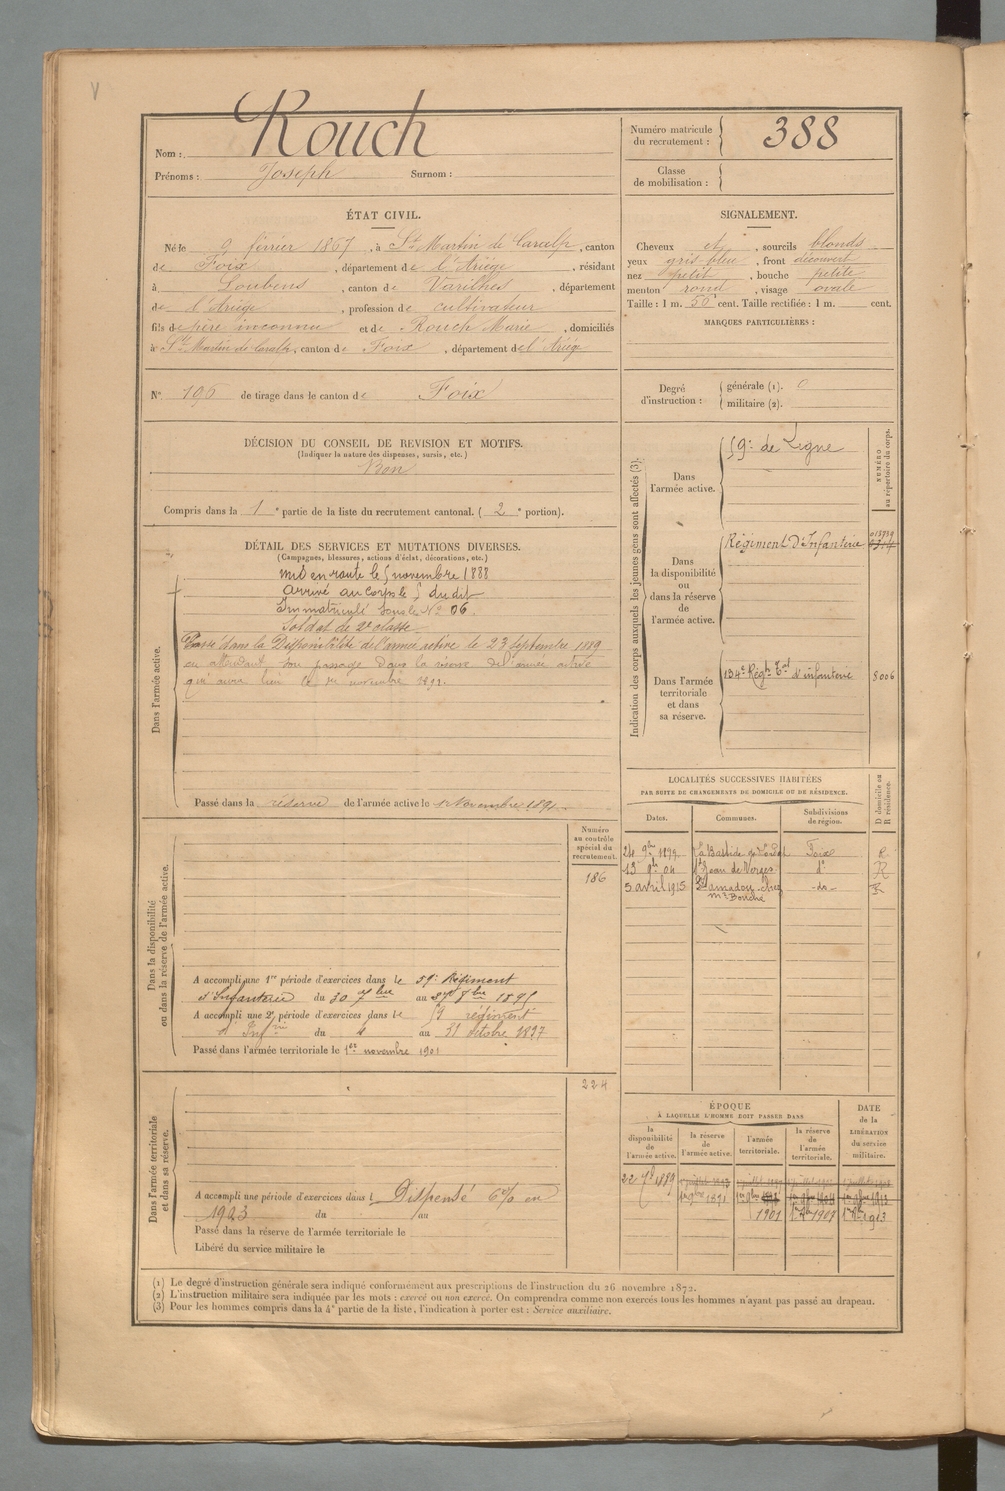 Rouch
Nom :
Prénoms : Joseph Surnom :
Numéro matricule du recrutement : 388
Classe de mobilisation :
ÉTAT CIVIL.
Né le 9 février 1867, à St Martin de Caralp, canton
de Foix, département de l'Ariège, résidant
à Loubens, canton de Varilhes, département
de l'Ariège, profession de cultivateur
fils de père inconnu et de Rouch Marie, domiciliés
à St Martin de Caralp, canton de Foix, département de l'Ariège
SIGNALEMENT.
Cheveux et, sourcils blonds
yeux gris-bleu, front découvert
nez petit, bouche petite
menton rond, visage ovale
Taille : 1 m. 50 cent. Taille rectifiée : 1 m. cent.
MARQUES PARTICULIÈRES :
N° 196 de tirage dans le canton de Foix
Degré d'instruction : générale (1). 0
militaire (2).
DÉCISION DU CONSEIL DE REVISION ET MOTIFS.
(Indiquer la nature des dispenses, sursis, etc.)
Bon
Compris dans la 1e partie de la liste du recrutement cantonal. ( 2e portion).
DÉTAIL DES SERVICES ET MUTATIONS DIVERSES.
(Campagnes, blessures, actions d'éclat, décorations, etc.)
Dans l'armée active.
mis en route le 5 novembre 1888
arrivé au corps le 5 du dit
Immatriculé sous le N° 06.
Soldat de 2e classe
Passé dans la Disponibilité de l'armée active le 23 septembre 1889
en attendant son passage dans la réserve de l'armée active
qui aura lieu le 1er novembre 1891.
Passé dans la réserve de l'armée active le 1 Novembre 1891
Indication des corps auxquels les jeunes gens sont affectés (3).
NUMÉRO au répertoire du corps.
Dans l'armée active.
59e de Ligne
Dans la disponibilité ou dans la réserve de l'armée active.
Régiment d'Infanterie
Dans l'armée territoriale et dans sa réserve.
134e Régt Tal d'infanterie 8006
LOCALITÉS SUCCESSIVES HABITÉES
PAR SUITE DE CHANGEMENTS DE DOMICILE OU DE RÉSIDENCE.
Dates. Communes. Subdivisions de région. D domicile ou R résidence.
24 9bre 1892 La Bastide de Foix R
13 9bre 04 St Jean de Verges do R
5 avril 1915 St amadou chez do R
Mr Bouché
Dans la disponibilité ou dans la réserve de l'armée active.
Numéro au contrôle spécial du recrutement.
186
A accompli une 1re période d'exercices dans le 59e Régiment
d'Infanterie du 30 7bre au 27 8bre 1895
A accompli une 2e période d'exercices dans le 59 régiment
d'Infrie du 4 au 31 octobre 1897
Passé dans l'armée territoriale le 1er novembre 1901
Dans l'armée territoriale et dans sa réserve.
224
A accompli une période d'exercices dans l Dispensé 6% en
1903 du au
Passé dans la réserve de l'armée territoriale le
Libéré du service militaire le
ÉPOQUE
À LAQUELLE L'HOMME DOIT PASSER DANS
DATE de la LIBÉRATION du service militaire.
la disponibilité de l'armée active. la réserve de l'armée active. l'armée territoriale. la réserve de l'armée territoriale.
22 7bre 1889
1er 9bre 1891
1901 1er 9bre 1907 1er 9bre 1913
(1) Le degré d'instruction générale sera indiqué conformément aux prescriptions de l'instruction du 26 novembre 1872.
(2) L'instruction militaire sera indiquée par les mots : exercé ou non exercé. On comprendra comme non exercés tous les hommes n'ayant pas passé au drapeau.
(3) Pour les hommes compris dans la 4e partie de la liste, l'indication à porter est : Service auxiliaire.